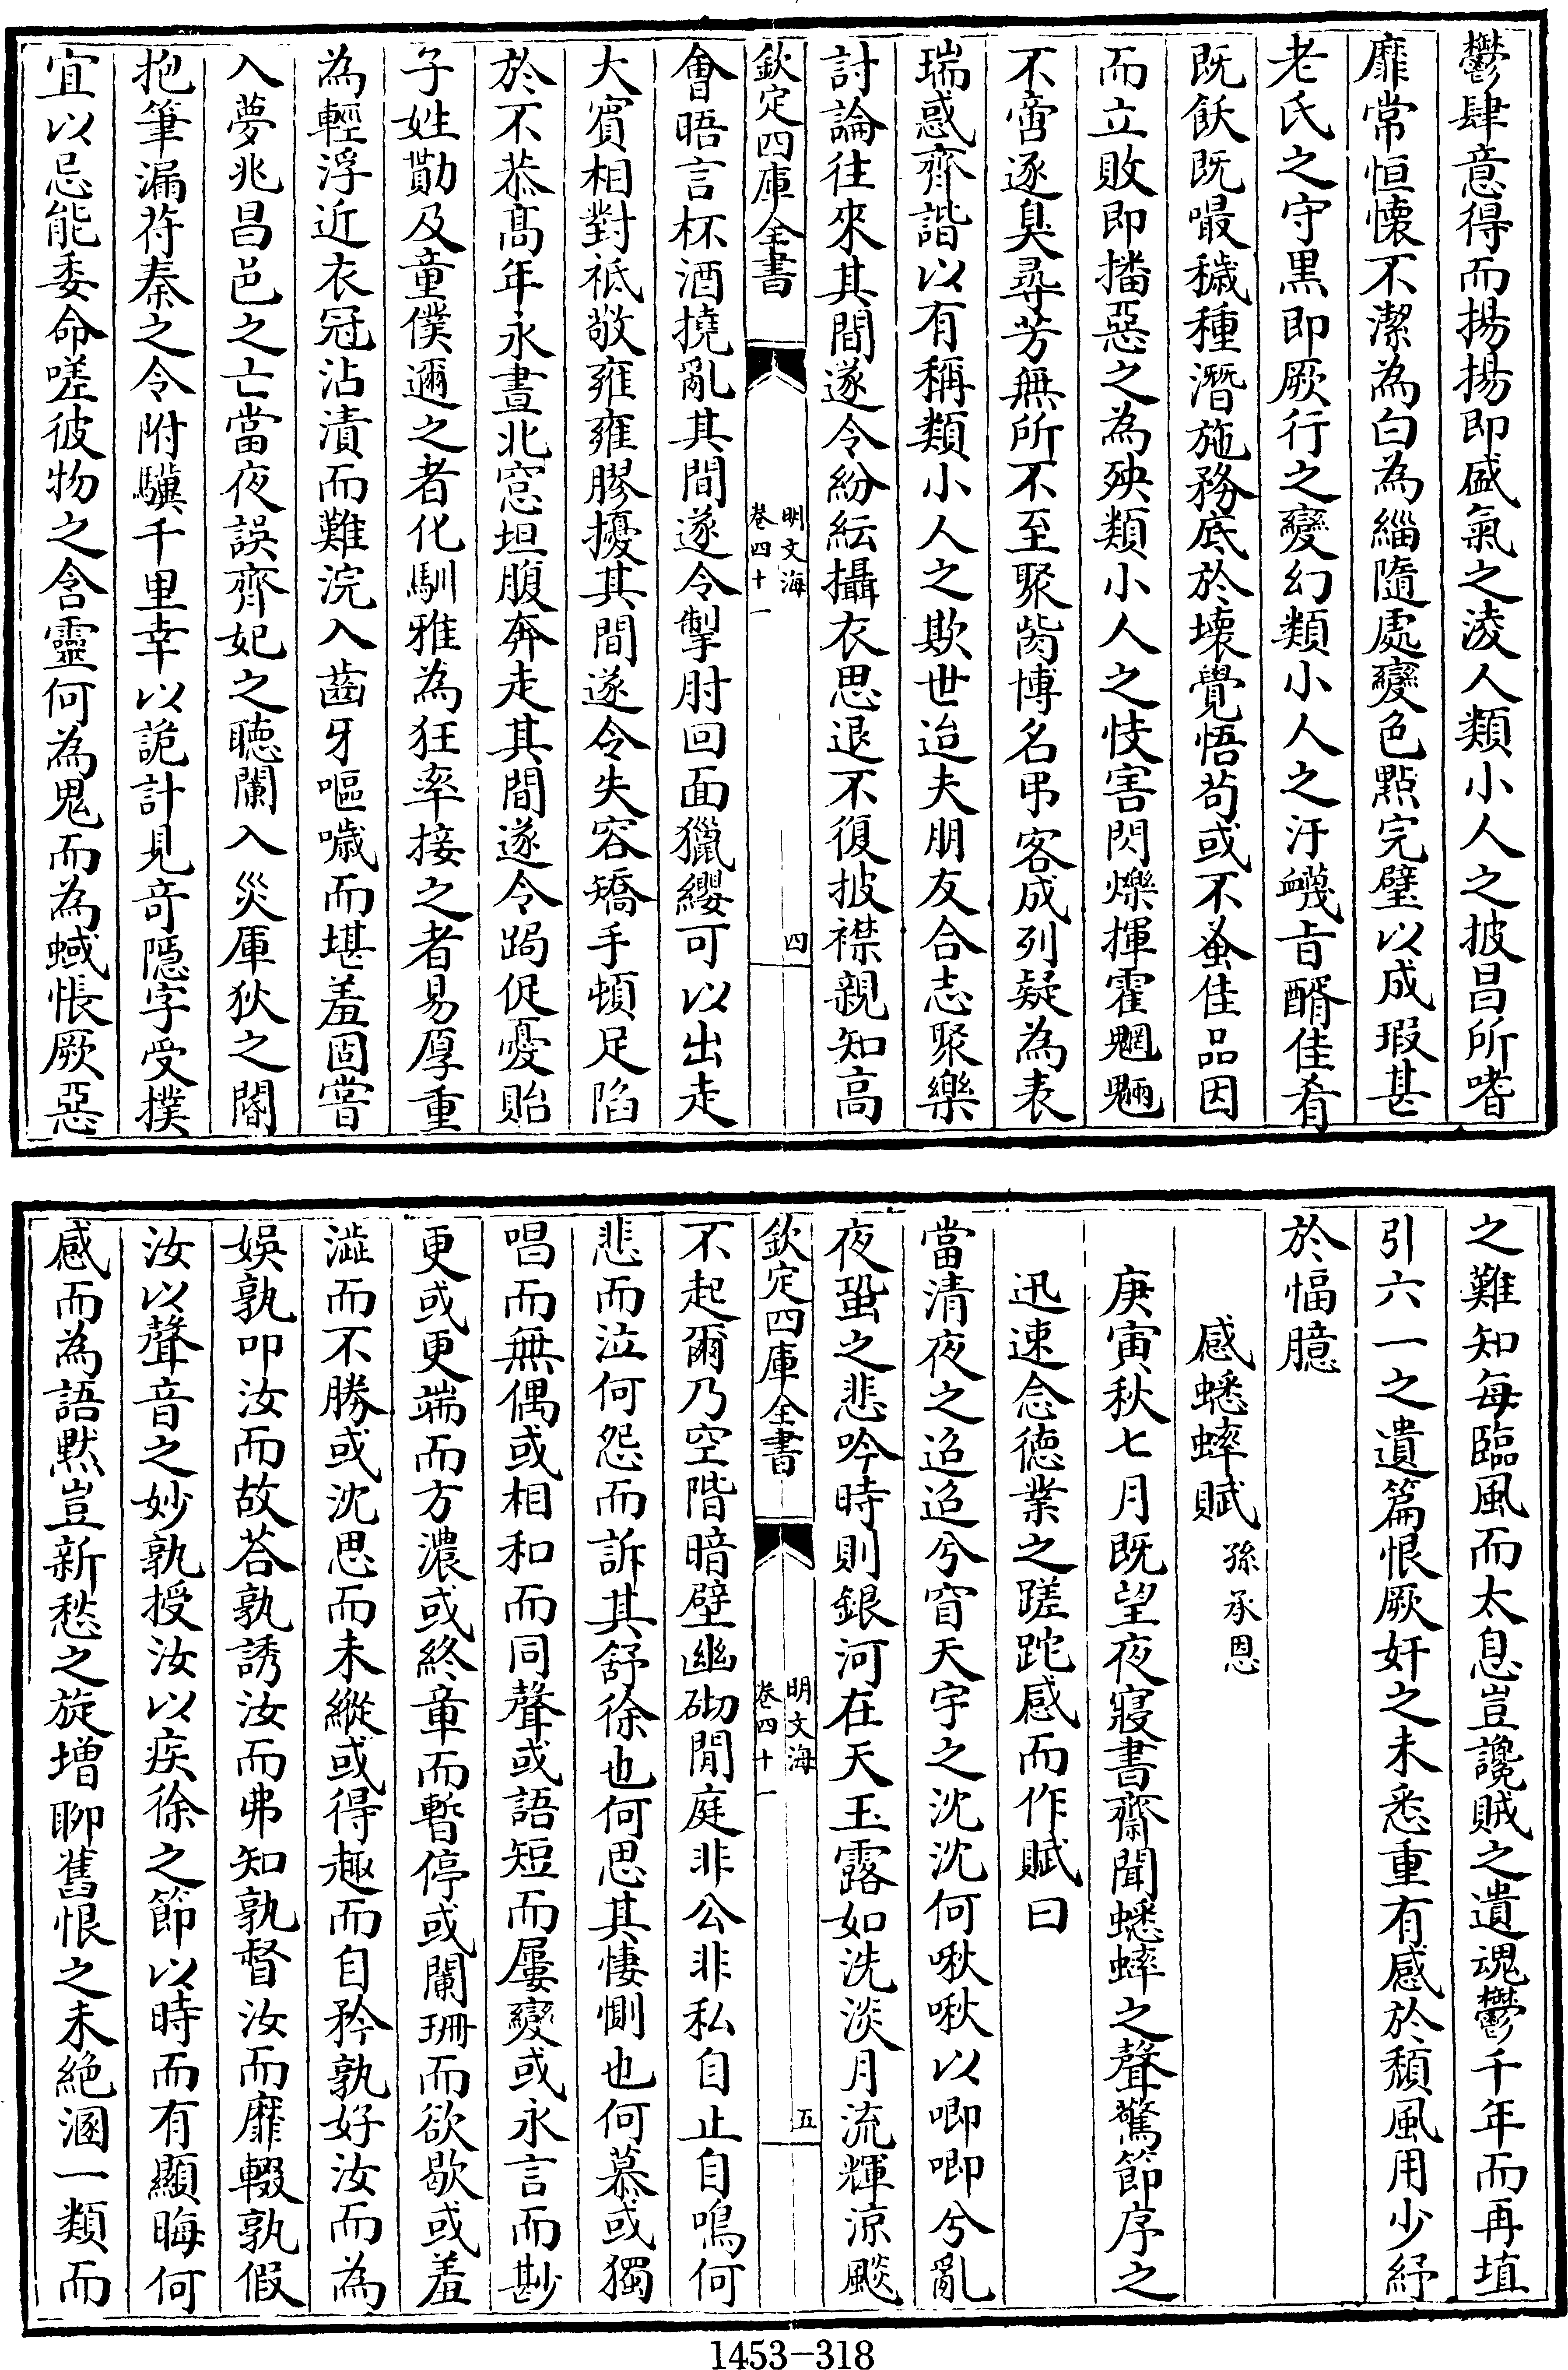 鬱肆意得而揚揚即盛氣之淩人類小人之披昌所嗜
靡常恒懐不潔為白為緇隨處變色點完璧以成瑕甚
老氏之守黒即厥行之變幻類小人之汙衊旨醑佳肴
既飫既嘬穢種潛施務底於壊覺悟茍或不蚤佳品因
而立敗即播惡之為殃類小人之忮害閃爍揮霍魍魎
不啻逐臭尋芳無所不至聚胔博名弔客成列疑為表
瑞惑齊諧以有稱類小人之欺世迨夫朋友合志聚樂
討論往來其間遂令紛紜攝衣思退不復披襟親知高
欽定四庫全書
明文海
卷四十一
四
會晤言杯酒撓亂其間遂令掣肘回面獵纓可以出走
大賓相對祗敬雍雍膠擾其間遂令失容矯手頓足陷
於不恭髙年永晝北窓坦腹奔走其間遂令跼促憂貽
子姓勩及童僕邇之者化馴雅為狂率接之者易厚重
為輕浮近衣冠沾漬而難浣入齒牙嘔噦而堪羞固嘗
入夢兆昌邑之亡當夜誤齊妃之聽闌入災厙狄之閽
抱筆漏苻秦之令附驥千里幸以詭計見竒隱字受撲
宜以忌能委命嗟彼物之含靈何為鬼而為蜮悵厥惡
之難知每臨風而太息豈讒賊之遺魂鬱千年而再填
引六一之遺篇恨厥奸之未悉重有感於頽風用少紓
於愊臆
感蟋蟀賦 孫承恩
庚寅秋七月既望夜寢書齋聞蟋蟀之聲驚節序之
迅速念徳業之蹉跎感而作賦曰
當清夜之迢迢兮窅天宇之沈沈何啾啾以唧唧兮亂
夜蛩之悲吟時則銀河在天玉露如洗淡月流輝涼颷
欽定四庫全書
明文海
卷四十一
五
不起爾乃空階暗壁幽砌閒庭非公非私自止自鳴何
悲而泣何怨而訴其舒徐也何思其悽惻也何慕或獨
唱而無偶或相和而同聲或語短而屢變或永言而尠
更或更端而方濃或終章而暫停或闌珊而欲歇或羞
澁而不勝或沈思而未縱或得趣而自矜孰好汝而為
娛孰叩汝而故荅孰誘汝而弗知孰督汝而靡輟孰假
汝以聲音之妙孰授汝以疾徐之節以時而有顯晦何
感而為語黙豈新愁之旋増聊舊恨之未絶溷一類而
1453-318